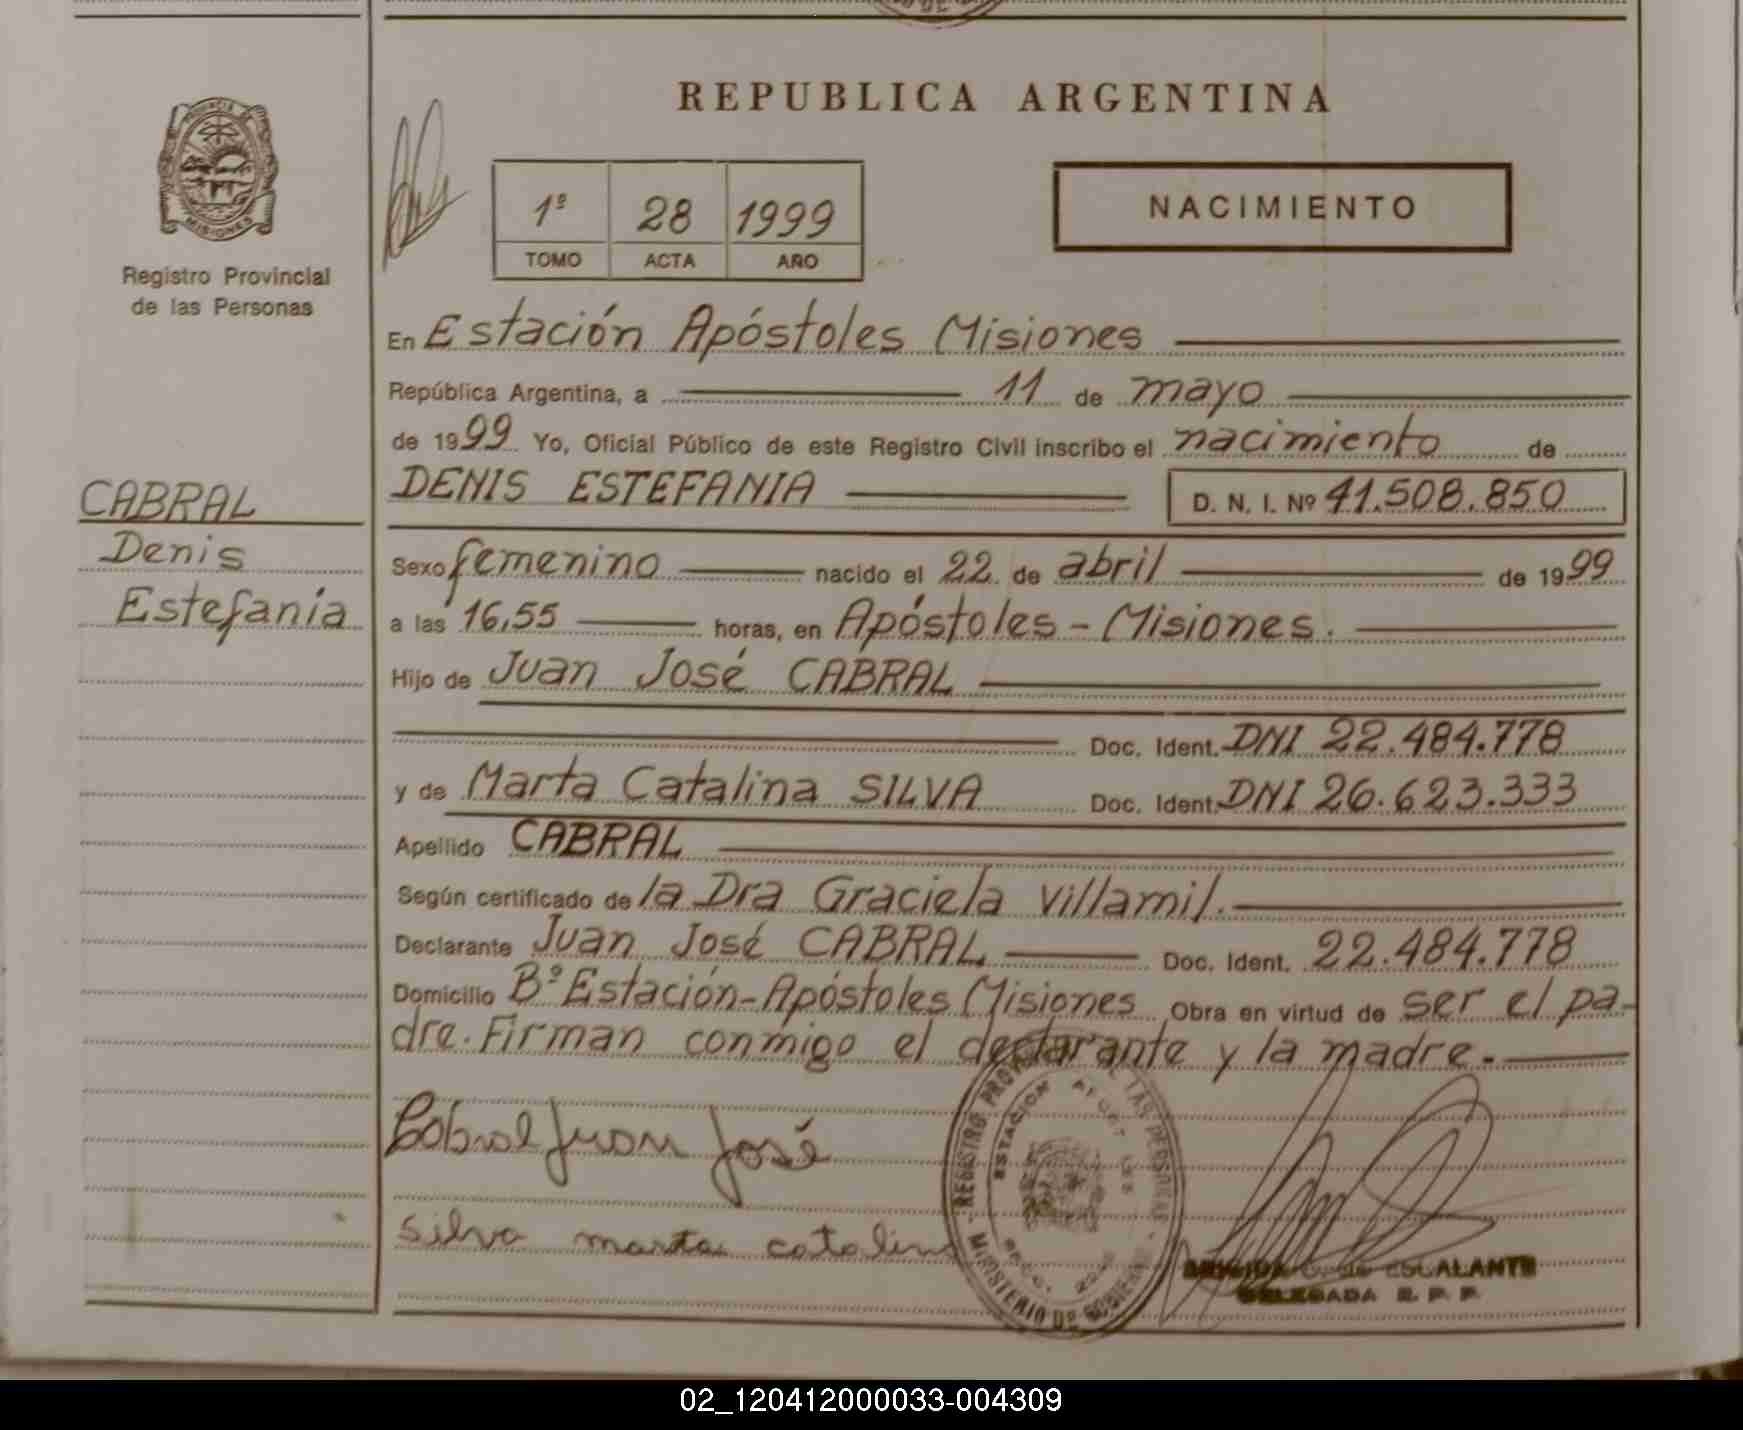 REPUBLICA ARGENTINA
PROVINCIA DE
MISIONES
Registro Provincial
de las Personas
1º 28 1999
TOMO ACTA AÑO
NACIMIENTO
En Estación Apóstoles Misiones
República Argentina, a 11 de mayo
de 1999 Yo, Oficial Público de este Registro Civil inscribo el nacimiento de
DENIS ESTEFANIA D. N. I. Nº 41.508.850
CABRAL
Denis
Estefanía
Sexo femenino nacido el 22 de abril de 1999
a las 16,55 horas, en Apóstoles - Misiones.
Hijo de Juan José CABRAL
Doc. Ident. DNI 22.484.778
y de Marta Catalina SILVA Doc. Ident. DNI 26.623.333
Apellido CABRAL
Según certificado de la Dra Graciela Villamil.
Declarante Juan José CABRAL Doc. Ident. 22.484.778
Domicilio Bº Estación-Apóstoles Misiones Obra en virtud de ser el pa-
dre. Firman conmigo el declarante y la madre.-
Cabral Juan José
silva marta catalina
REGISTRO PROVINCIAL DE LAS PERSONAS
ESTACION APOSTOLES
MINISTERIO DE GOBIERNO
BRIGIDA G. de ESCALANTE
DELEGADA R. P. P.
02_120412000033-004309